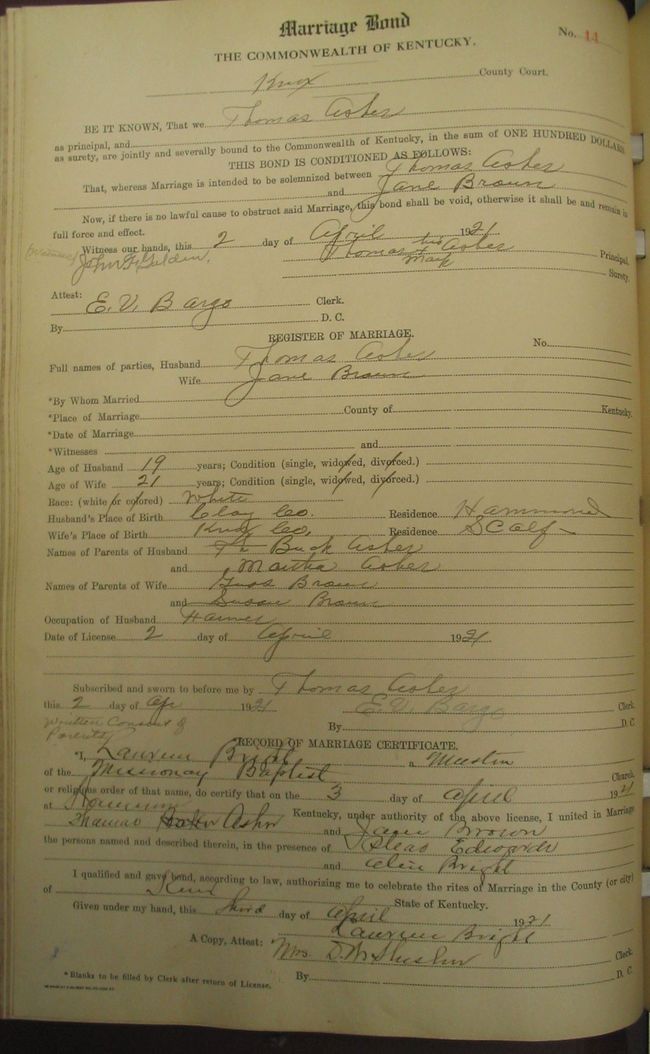 Marriage Bond
No. 14
THE COMMONWEALTH OF KENTUCKY.
Knox County Court.
BE IT KNOWN, That we Thomas Asher
as principal, and
as surety, are jointly and severally bound to the Commonwealth of Kentucky, in the sum of ONE HUNDRED DOLLARS.
THIS BOND IS CONDITIONED AS FOLLOWS:
That, whereas Marriage is intended to be solemnized between Thomas Asher
and Jane Brown
Now, if there is no lawful cause to obstruct said Marriage, this bond shall be void, otherwise it shall be and remain in
full force and effect.
Witness our hands, this 2 day of April 1921
Witness John G Golden. Thomas his mark Asher Principal.
Surety.
Attest:
E. V. Bargo Clerk.
By D. C.
REGISTER OF MARRIAGE.
No.
Full names of parties, Husband Thomas Asher
Wife Jane Brown
*By Whom Married
*Place of Marriage County of Kentucky.
*Date of Marriage
*Witnesses and
Age of Husband 19 years; Condition (single, widowed, divorced.)
Age of Wife 21 years; Condition (single, widowed, divorced.)
Race: (white or colored) White
Husband's Place of Birth Clay Co. Residence Hammond
Wife's Place of Birth Knox Co. Residence Scalf
Names of Parents of Husband Buck Asher
and Martha Asher
Names of Parents of Wife Brown
and Susan Brown
Occupation of Husband Farmer
Date of License 2 day of April 1921
Subscribed and sworn to before me by Thomas Asher
this 2 day of Ap 1921 E. V. Bargo Clerk.
By D. C.
Written Consent of
Parents
RECORD OF MARRIAGE CERTIFICATE.
*I, Bright a
of the Missionary Baptist Church,
or religious order of that name, do certify that on the 3 day of April 1921
at Kentucky, under authority of the above license, I united in Marriage
Thomas Asher and Jane Brown
the persons named and described therein, in the presence of Edwards
and Bright
I qualified and gave bond, according to law, authorizing me to celebrate the rites of Marriage in the County (or city)
of Knox State of Kentucky.
Given under my hand, this third day of April 1921
Bright
A Copy, Attest: Mrs. D. W. Clerk.
By D. C.
*Blanks to be filled by Clerk after return of License.